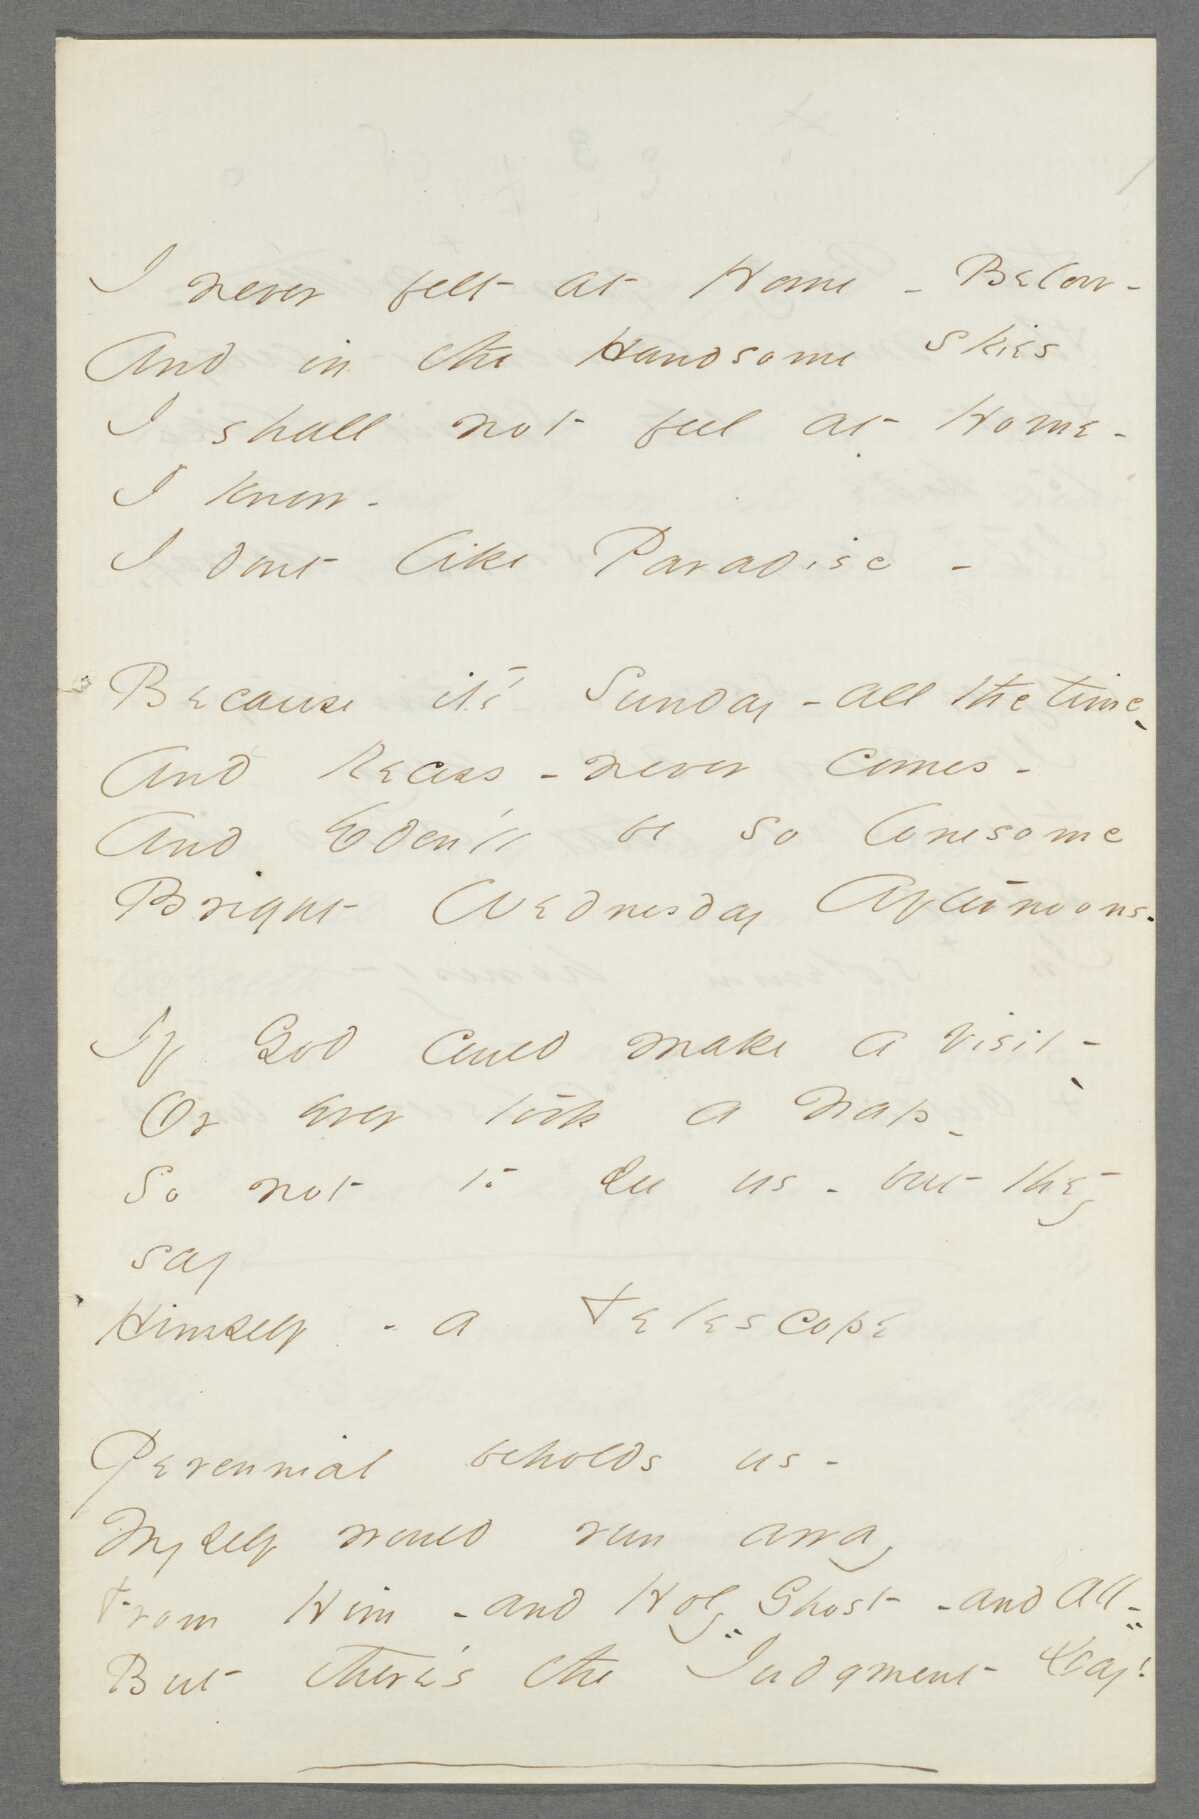 I never felt at Home - Below -
And in the Handsome Skies
I shall not feel at Home -
I know -
I dont like Paradise -
Because it's Sunday - all the time
And Recess - never comes -
And Eden'll be so lonesome
Bright Wednesday Afternoons -
If God could make a visit -
Or ever took a Nap -
So not to see us - but they
say
Himself - a Telescope
Perennial beholds us -
Myself would run away
From Him - and Holy Ghost - and all -
But there's the "Judgment Day"!